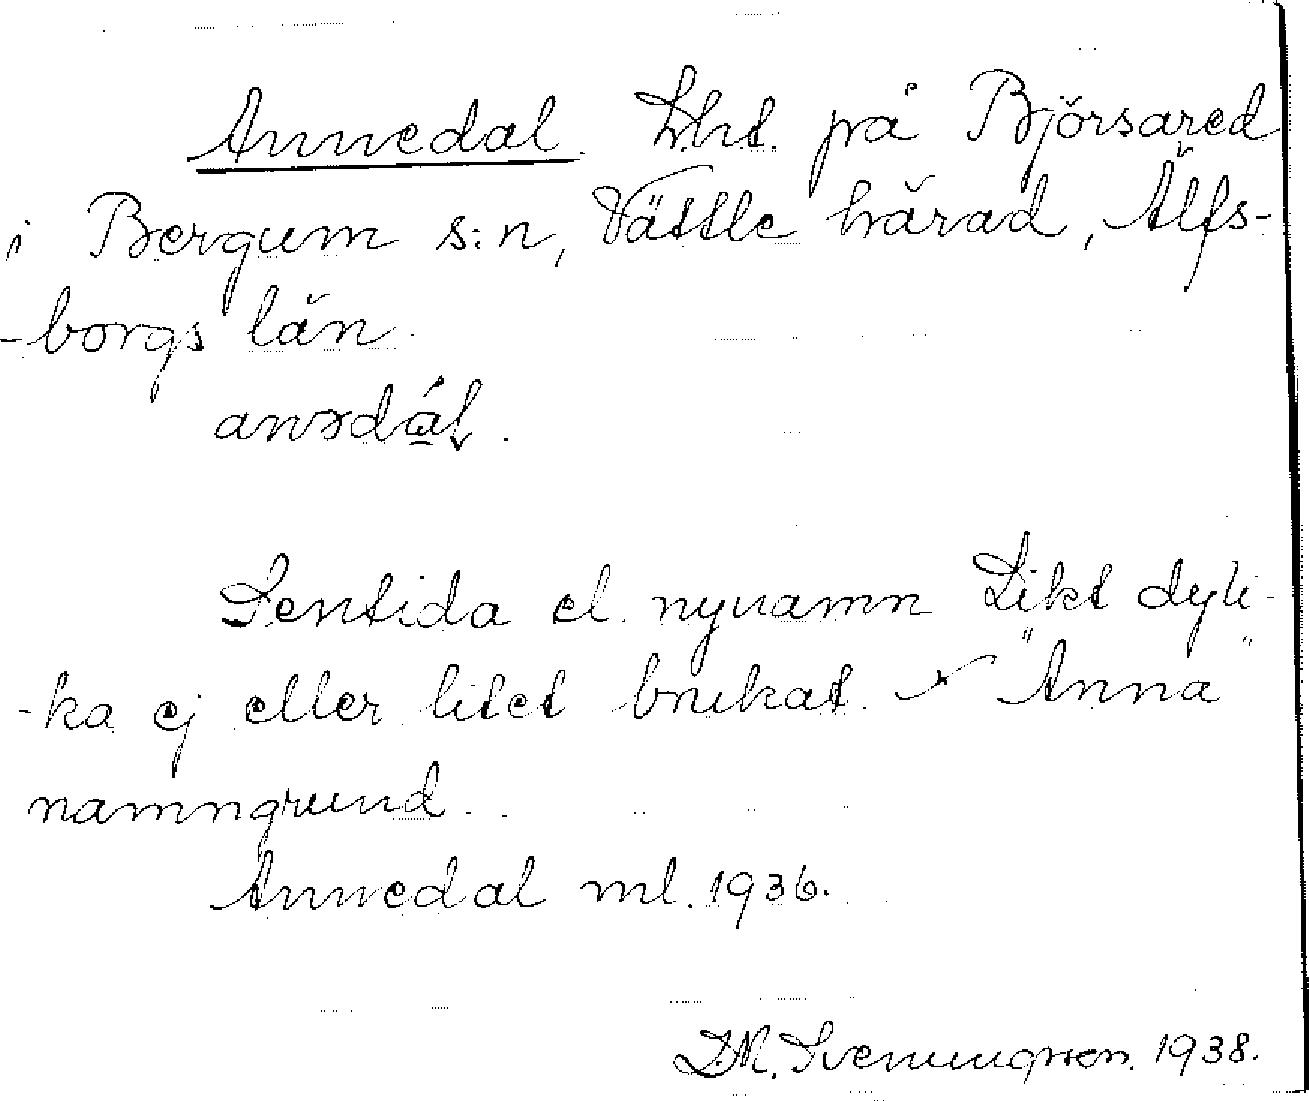 Annedal. Lht. på Björsared
i Bergum s:n, Vättle härad, Älfs-
-borgs län.
anədál.
Sentida el. nynamn Likt dyli-
-ka ej eller litet brukat. "Anna"
namngrund.
Annedal ml. 1936.
D.M. Svenungsson. 1938.